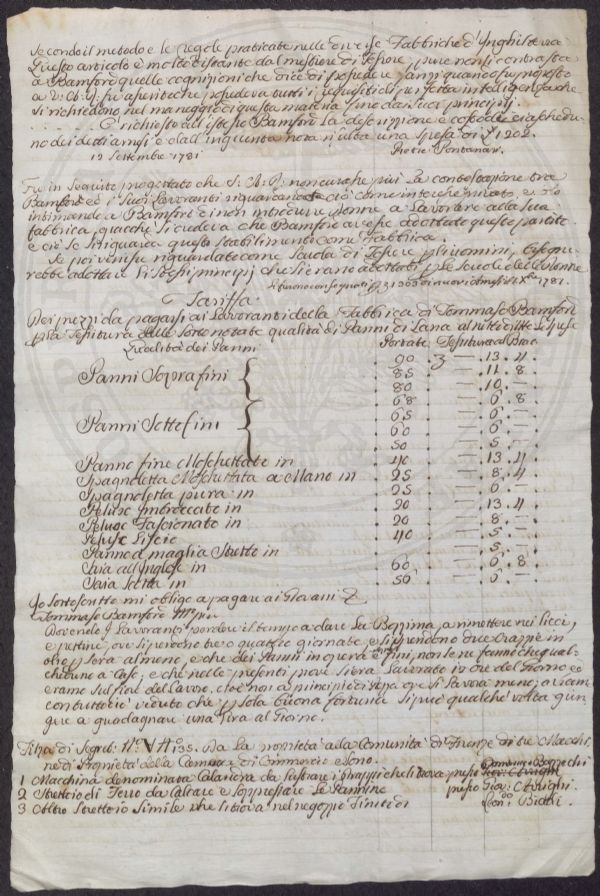 Secondo il metodo e le regole praticate nelle diverse Fabbriche d'Inghilterra
Questo articolo è molto distante dal mestiere di Tessere, pure non si contrasta
a Bamford quelle cognizioni che dice di possedere, anzi quando fu proposto
a V. A. R. fu asserito che possedeva tutti i requisiti di perfetta intelligenza che
si richiedono nel maneggio di questa materia fino da suoi principj.
E richiesto all'istesso Bamford la descrizione e costo di ciascheduno
dei dedi arnesi e dall'ingiunta nota risulta una spesa di £ 1902.
12 Settembre 1781 Pietro Fontanari.
Fu in seguito progettato che S. A. R. non curasse più la contestazione tra
Bamford ed i suoi Lavoranti riguardando ciò come interesse privato, e
intimando a Bamford di non introdurre donne a Lavorare alla sua
fabbrica, giacché si credeva che Bamford avesse adottato questo partito
e ciò se si riguarda questo stabilimento come fabbrica.
Se poi venisse riguardato come Scuola di Tessere per gli uomini, bisognerebbe
adottare li stessi principj che si erano adottati per le Scuole delle Donne
1781.
Tariffa
Dei prezzi da pagarsi ai Lavoranti della Fabbrica di Tommaso Bamford
per la Tessitura delle sotto notate qualità di Panni di Lana a tutte dette spese
Qualità dei Panni Portate Tessitura al Brac.
Panni Soprafini 90 3 — 13. 4
85 — 11. 8
80 — 10. —
Panni Sottofini 68 — 6. 8
65 — 6. —
60 — 6. —
50 — 5. —
Panno fine Moschettato in 40 — 13. 4
Spagnoletta Moschettata a Mano in 25 — 8. 4
Spagnoletta pura in 25 — 6. —
Peluse Imbroccato in 20 — 13. 4
Peluse Fascionato in 20 — 8. —
Peluse Liscio 40 — 5. —
Panno a maglia Stretto in — 5. —
Saia all'Inglese in 60 — 6. 8
Saia Scotta in 50 — 6. —
Io sottoscritto mi obligo a pagare ai Giovani
Tommaso Bamford
Dovendo i Lavoranti perdere il tempo a dare la Bozzima, a rimettere nei licci,
e pettine, ove si perdono tre o quattro giornate, e si prendono due crazie in
olio per sera almeno, e che dei Panni in opera e fini, non se ne fanno che qualcheduno
a caso, e che nelle presenti prove si era Lavorato in ore del Giorno ed
erano sul fior del Lavoro, cioè non a principio di tela ove si lavora meno,
con tutto ciò veduto che per sola buona fortuna si può qualche volta giungere
a guadagnare una Lira al Giorno.
Filza di Segret. N.° VII 135. Da La proprietà alla Comunità di Firenze di tre Macchine
di Proprietà della Camera di Commercio e sono.
1 Macchina denominata Calandra da lustrare i drappi che si trova presso Domenico Bozzechi
2 Strettoio di Ferro da Calcare e soppressare Le Pannine presso Gio: Arrighi
3 Altro Strettoio simile che si trova nel negozio Tinti di